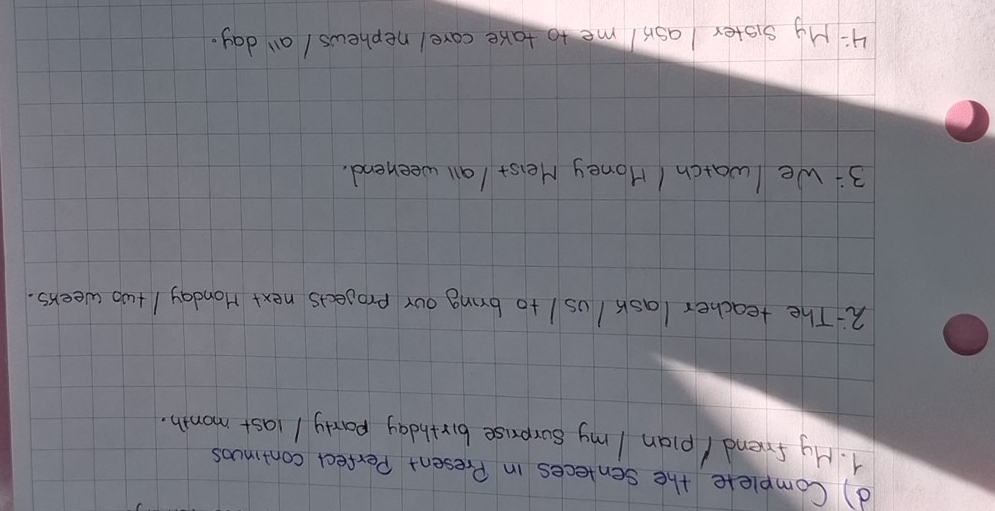 d) Complete the senteces in Present Perfect continuos
1. My friend / plan / my surprise birthday party / last month.
2- The teacher / ask / us / to bring our projects next Monday / two weeks.
3- We / watch / Money Heist / all weekend.
4- My sister / ask / me to take care / nephews / all day.